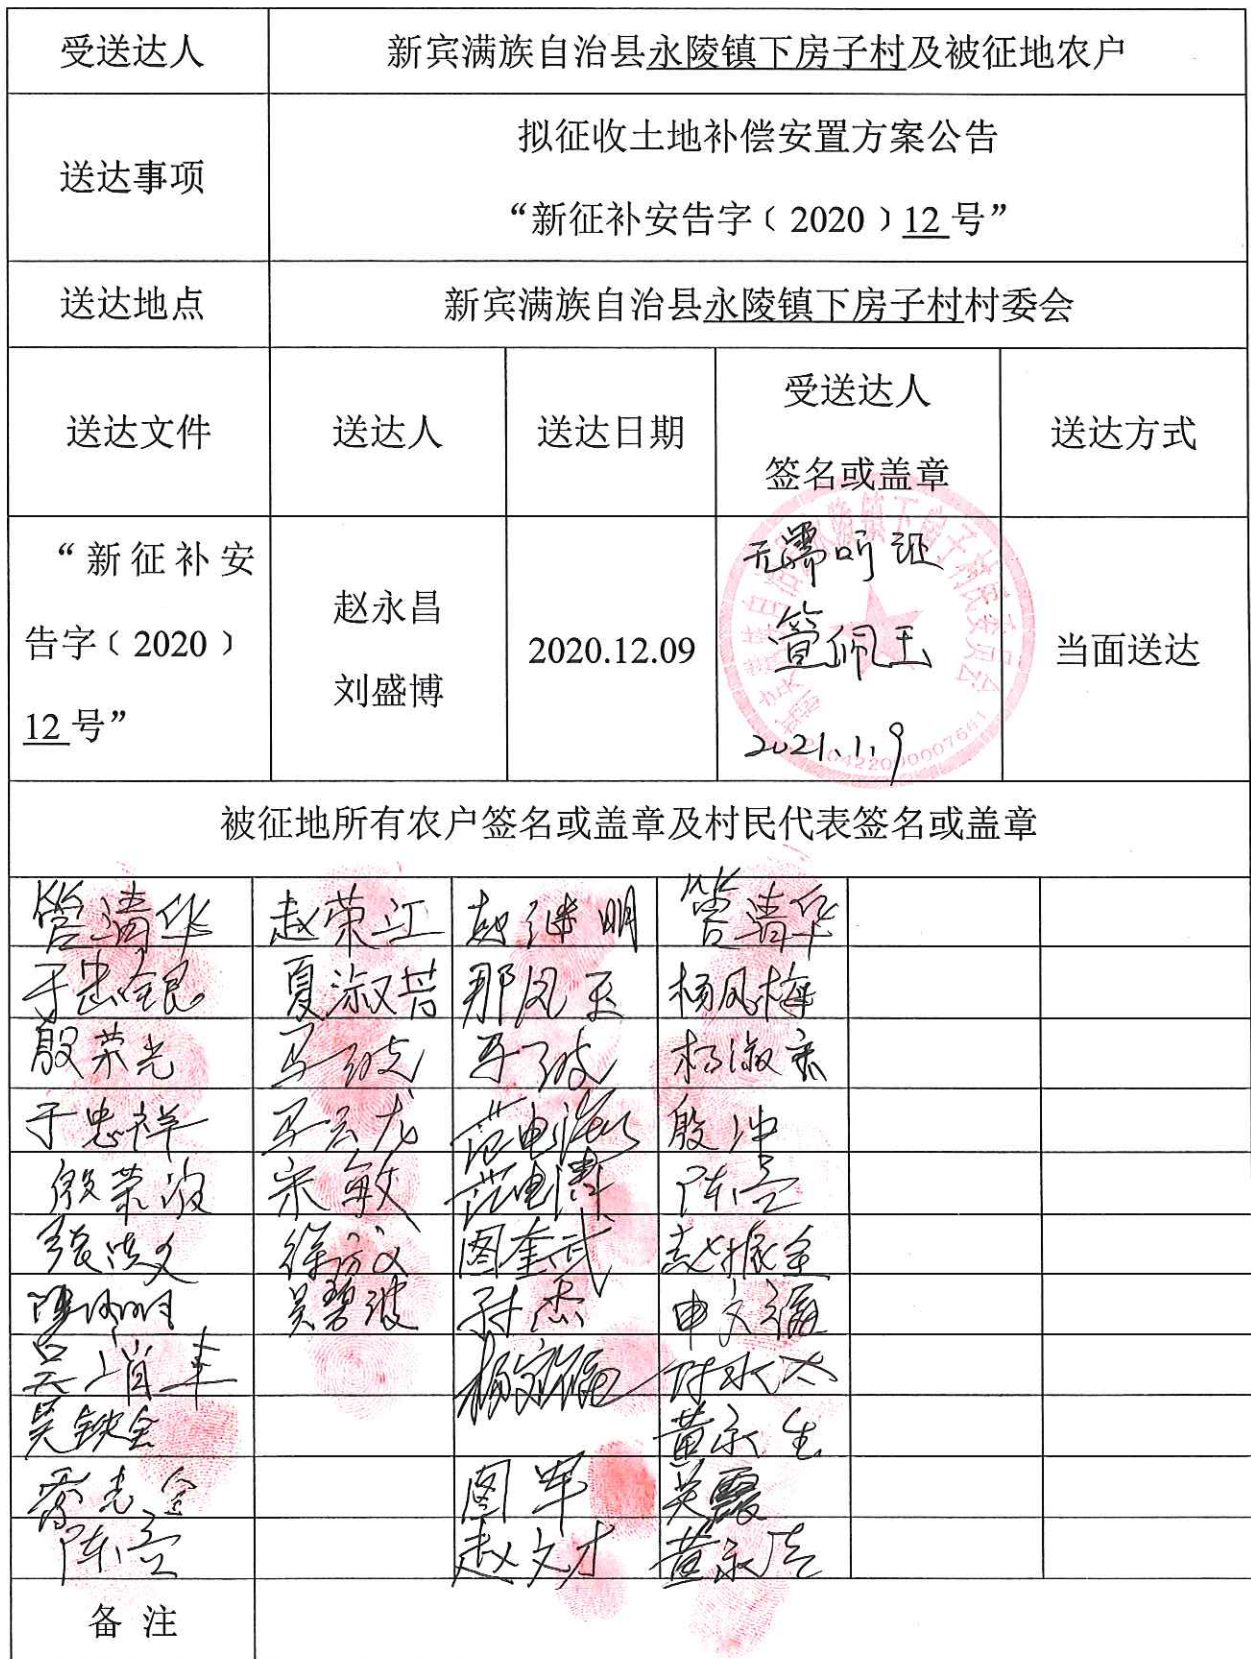 受送达人 新宾满族自治县永陵镇下房子村及被征地农户
送达事项 拟征收土地补偿安置方案公告
“新征补安告字﹝2020﹞12 号”
送达地点 新宾满族自治县永陵镇下房子村村委会
送达文件 送达人 送达日期 受送达人
签名或盖章 送达方式
“新征补安
告字﹝2020﹞
12 号”
赵永昌
刘盛博
2020.12.09
无需听证
管佩玉
2021.1.9
当面送达
被征地所有农户签名或盖章及村民代表签名或盖章
管清华 赵荣江 赵继明 管清华
夏淑芳 那凤玉 杨凤梅
殷荣光 马
于忠祥 马云龙 殷冲
殷荣波 宋敏 陈亮
张洪文 图奎武 赵振全
吴碧波 付杰 申文通
付永太
吴铁全 黄永生
图军 关霞
陈亮 赵文才 黄永
备 注